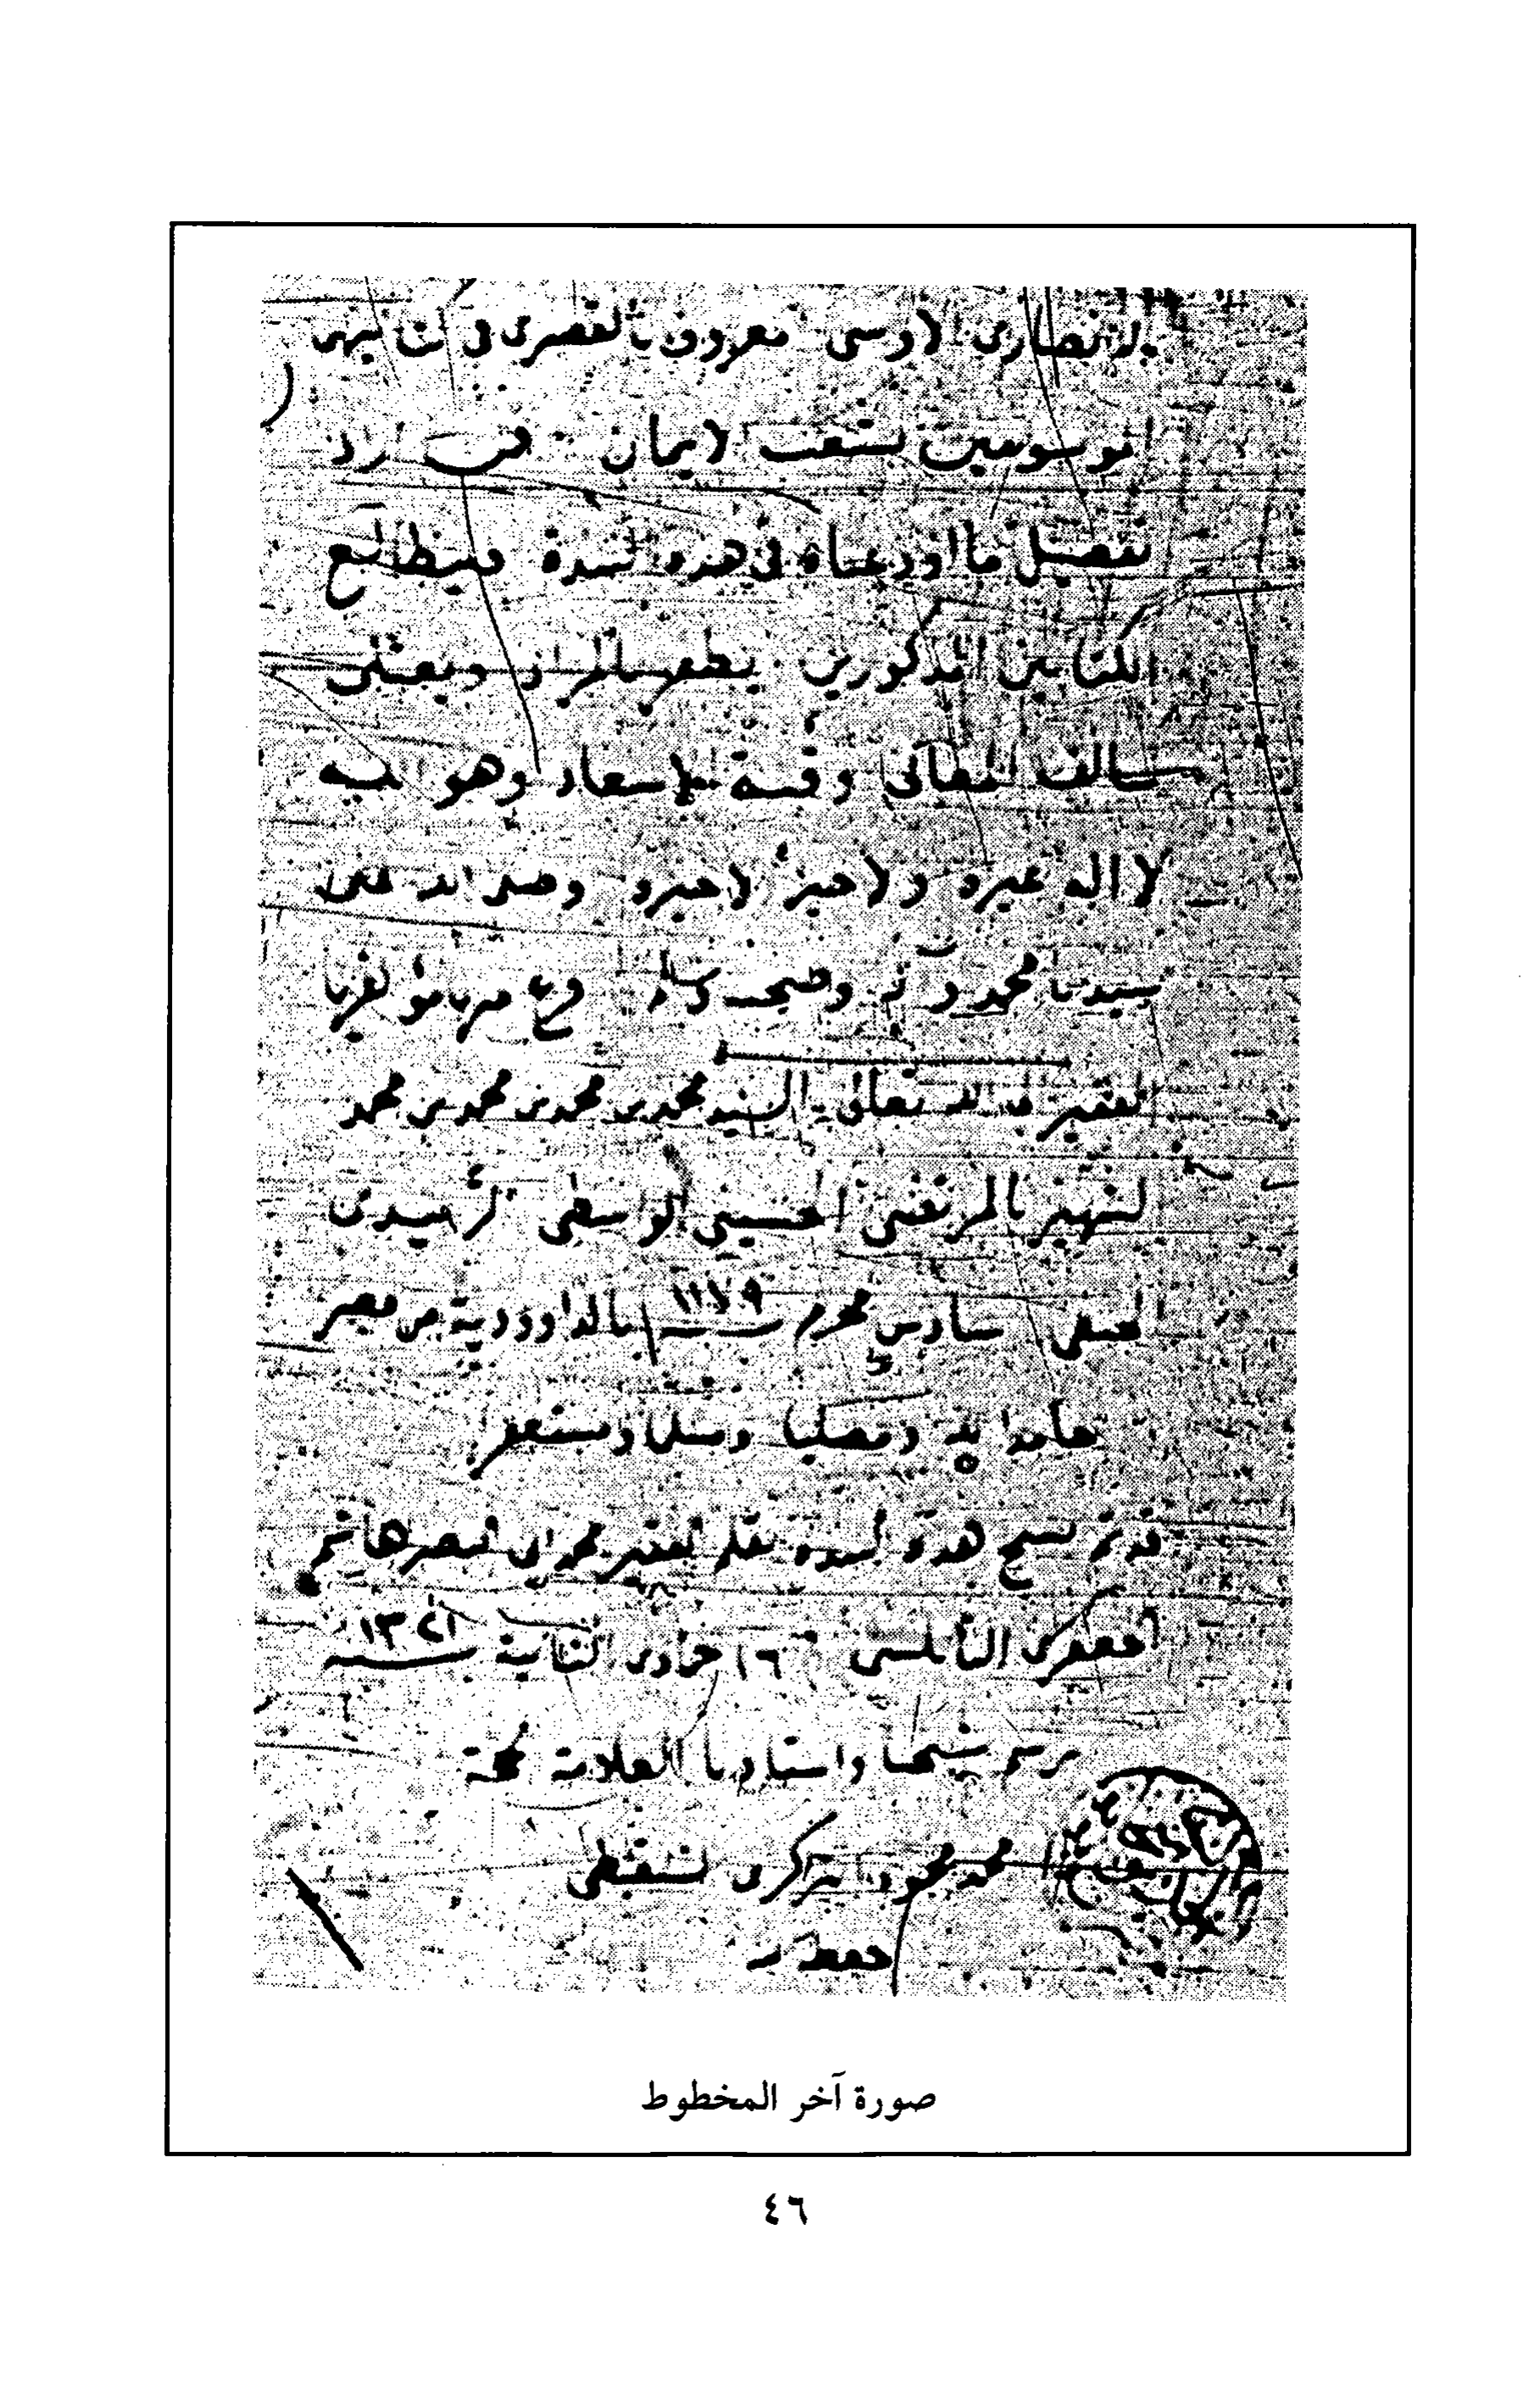 الانصارى الاوسى معروف بالقصرى فى كتابيهما
الموسومين بشعب الايمان فمن اراد
تفصيل ما اودعناه فى هذه النبذة فليطالع
الكتابين المذكورين يظفر بالمراد ويعتلى
سالف المعالى وقنة الاسعاد وهو الله
لا اله غيره ولا خير الا خيره وصلى الله على
سيدنا محمد وآله وصحبه وسلم فرغ منها مؤلفها
الفقير الى الله تعالى السيد محمد بن محمد بن محمد بن محمد
الشهير بالمرتضى الحسينى الواسطى الزبيدى
الحنفى سادس محرم سنة ١١٧٩ بالداوودية من مصر
حامدا لله ومصليا ومسلما ومستغفرا
قد تم نسخ هذه النبذة بقلم الفقير محمد ابى النصر هاشم
الجعفرى النابلسى ١٦ جمادى الثانية سنة ١٣٢١
برسم شيخنا واستاذنا العلامة الحجة
محمد محمود التركزى الشنقيطى
حفظه
صورة آخر المخطوط
٤٦